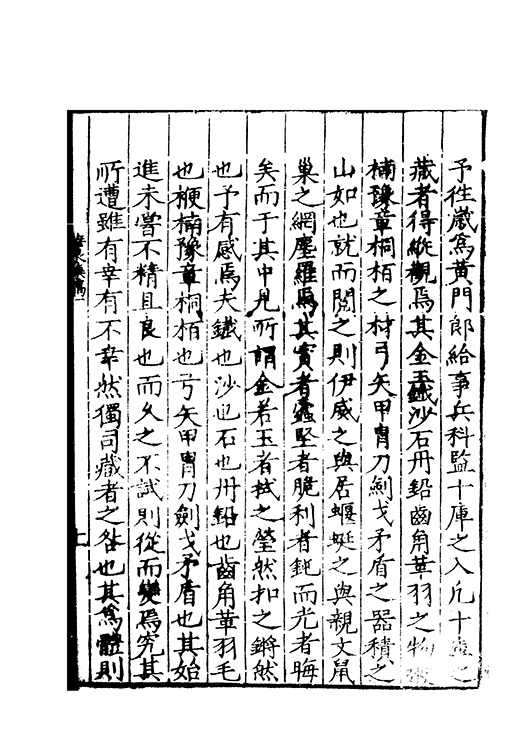 予徃嵗爲黄門郎給事兵科監十庫之入凡十庫之
藏者得縱觀焉其金玉鐵沙石丹鉛齒角革羽之物
楠豫章桐栢之材弓矢甲胄刀劍戈矛盾之器積之
山如也就而閲之則伊威之與居蝘蜓之與親文鼠
巢之網塵羅焉其實者蠡堅者脆利者鈍而光者晦
矣而于其中見所謂金若玉者拭之瑩然扣之鏘然
也予有感焉夫鐵也沙也石也丹鉛也齒角革羽毛
也楩楠豫章桐栢也弓矢甲胄刀劍戈矛盾也其始
進未嘗不精且良也而久之不試則從而變焉究其
所遭雖有幸有不幸然獨司藏者之咎也其爲體則